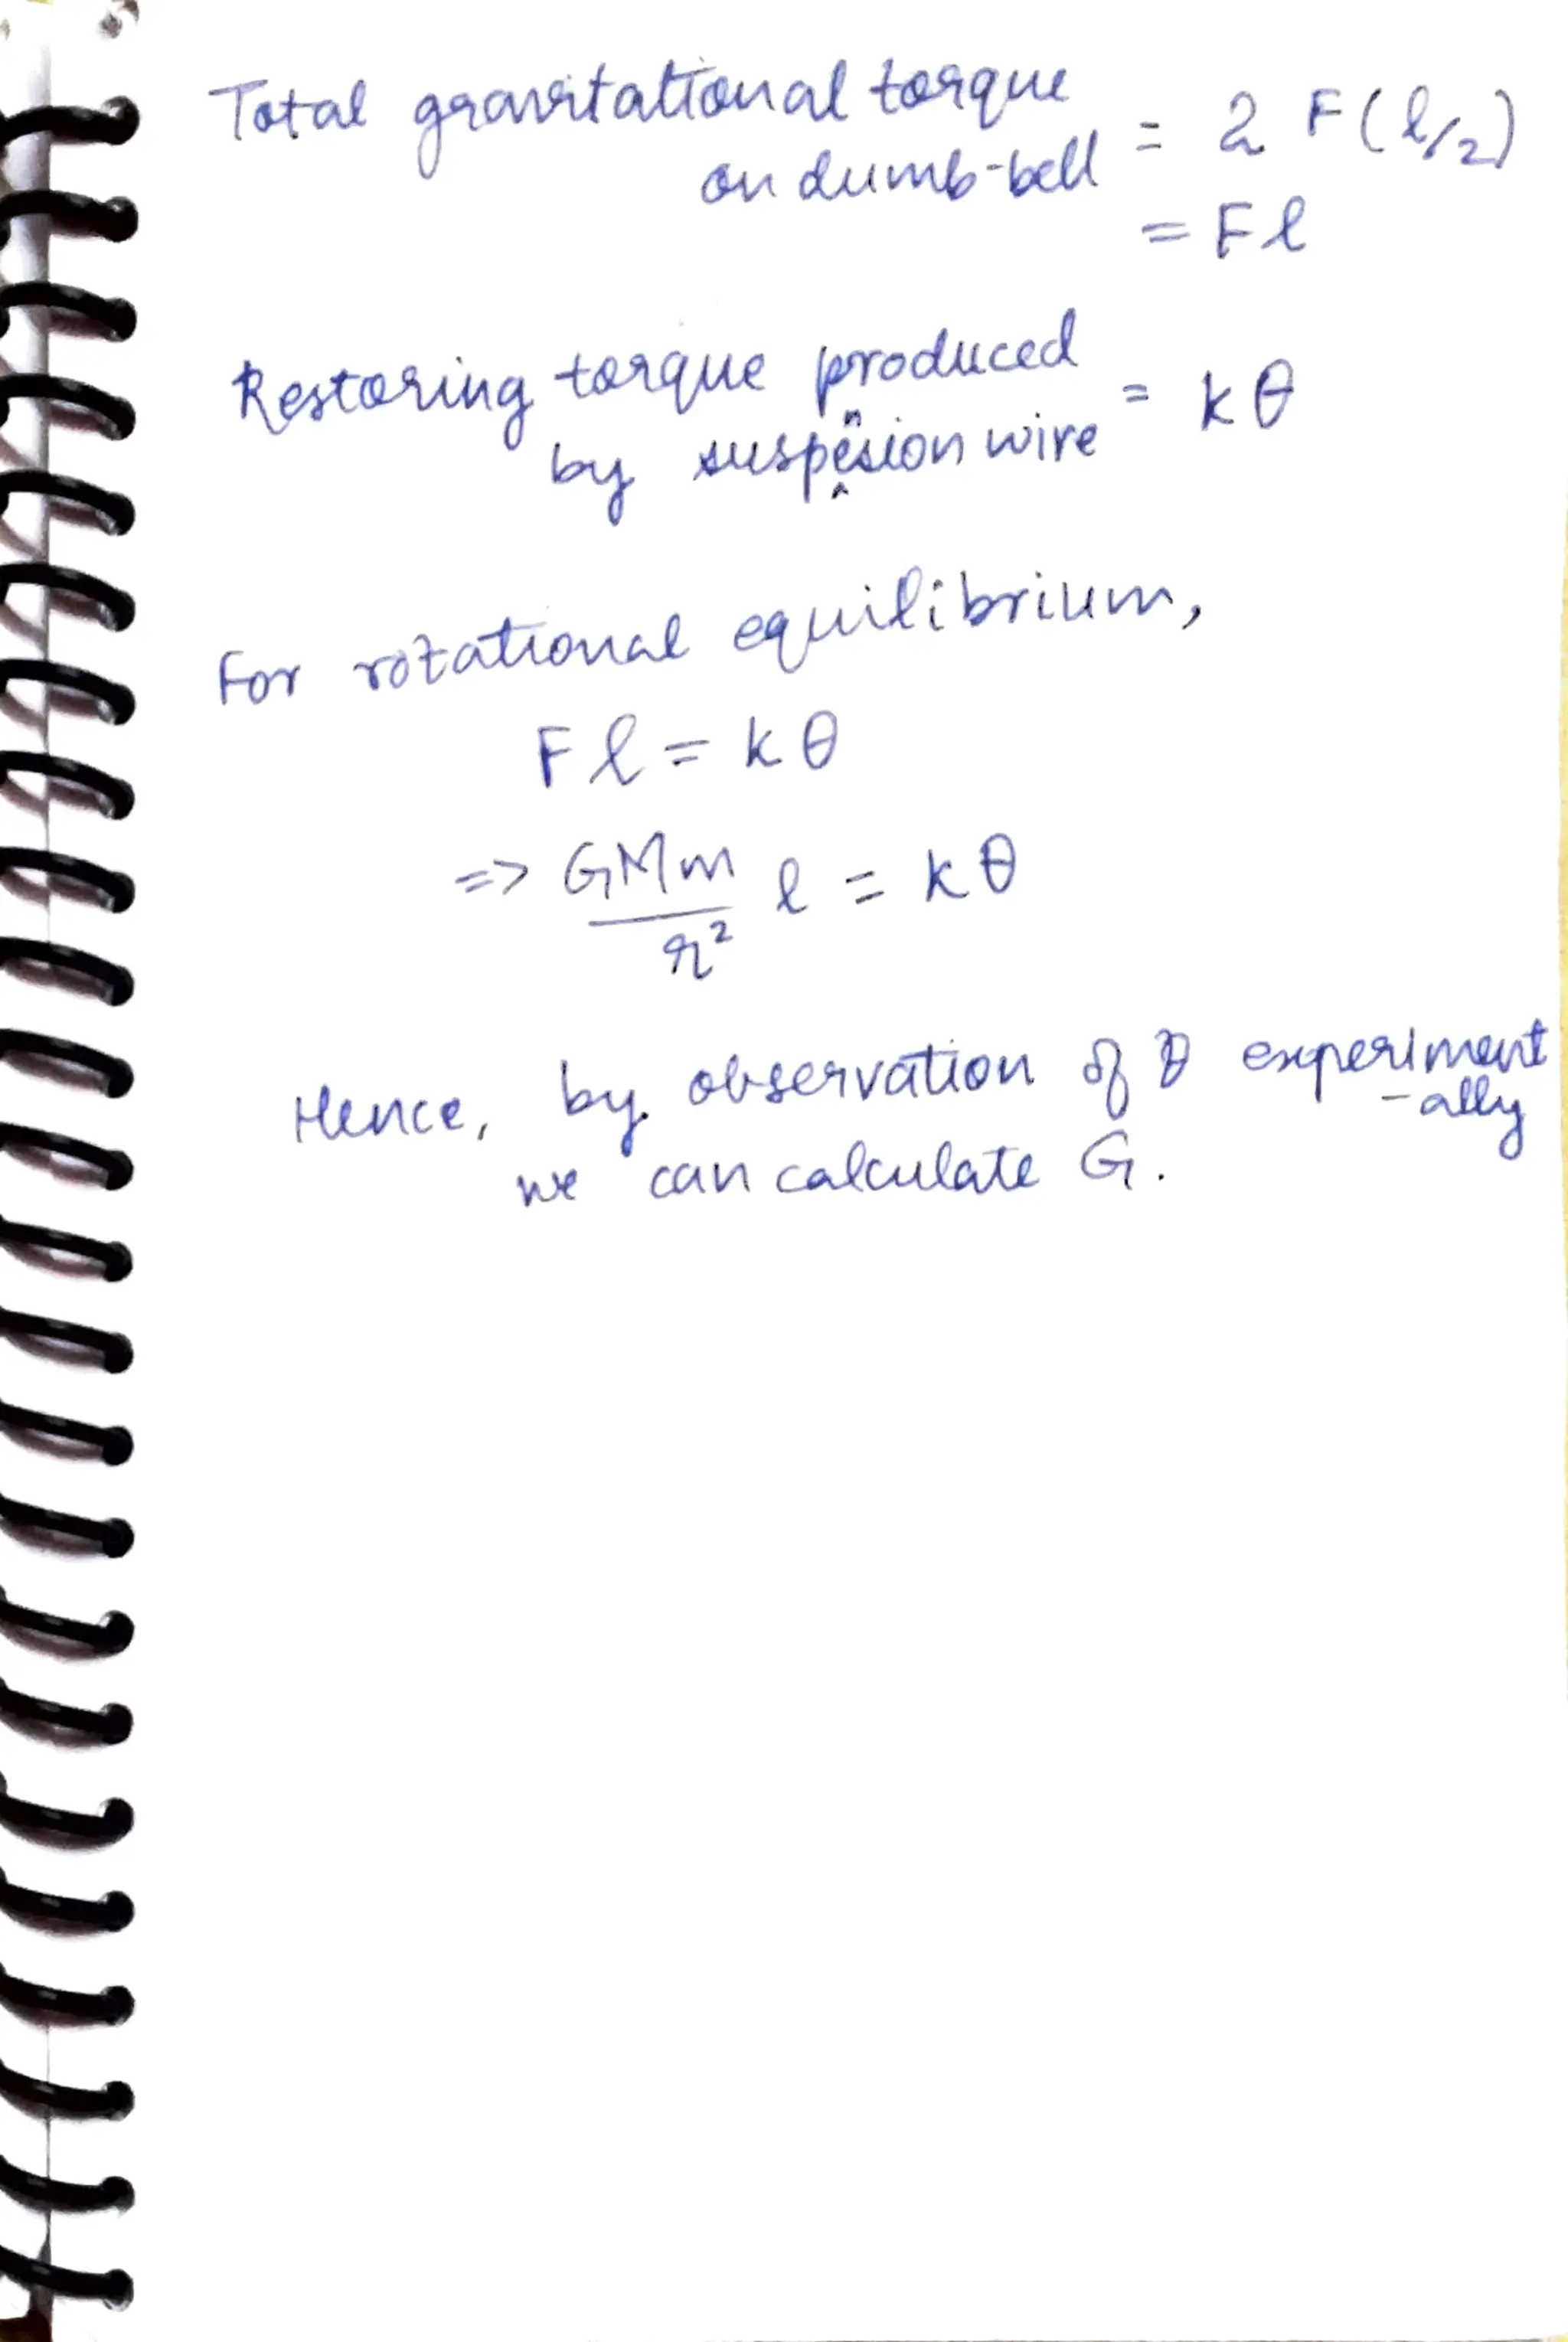 Total gravitational torque
on dumb-bell = 2 F(l/2)
= Fl
Restoring torque produced
by suspension wire = kθ
For rotational equilibrium,
Fl = kθ
=> GMm/r² l = kθ
Hence, by observation of θ experiment
-ally
we can calculate G.